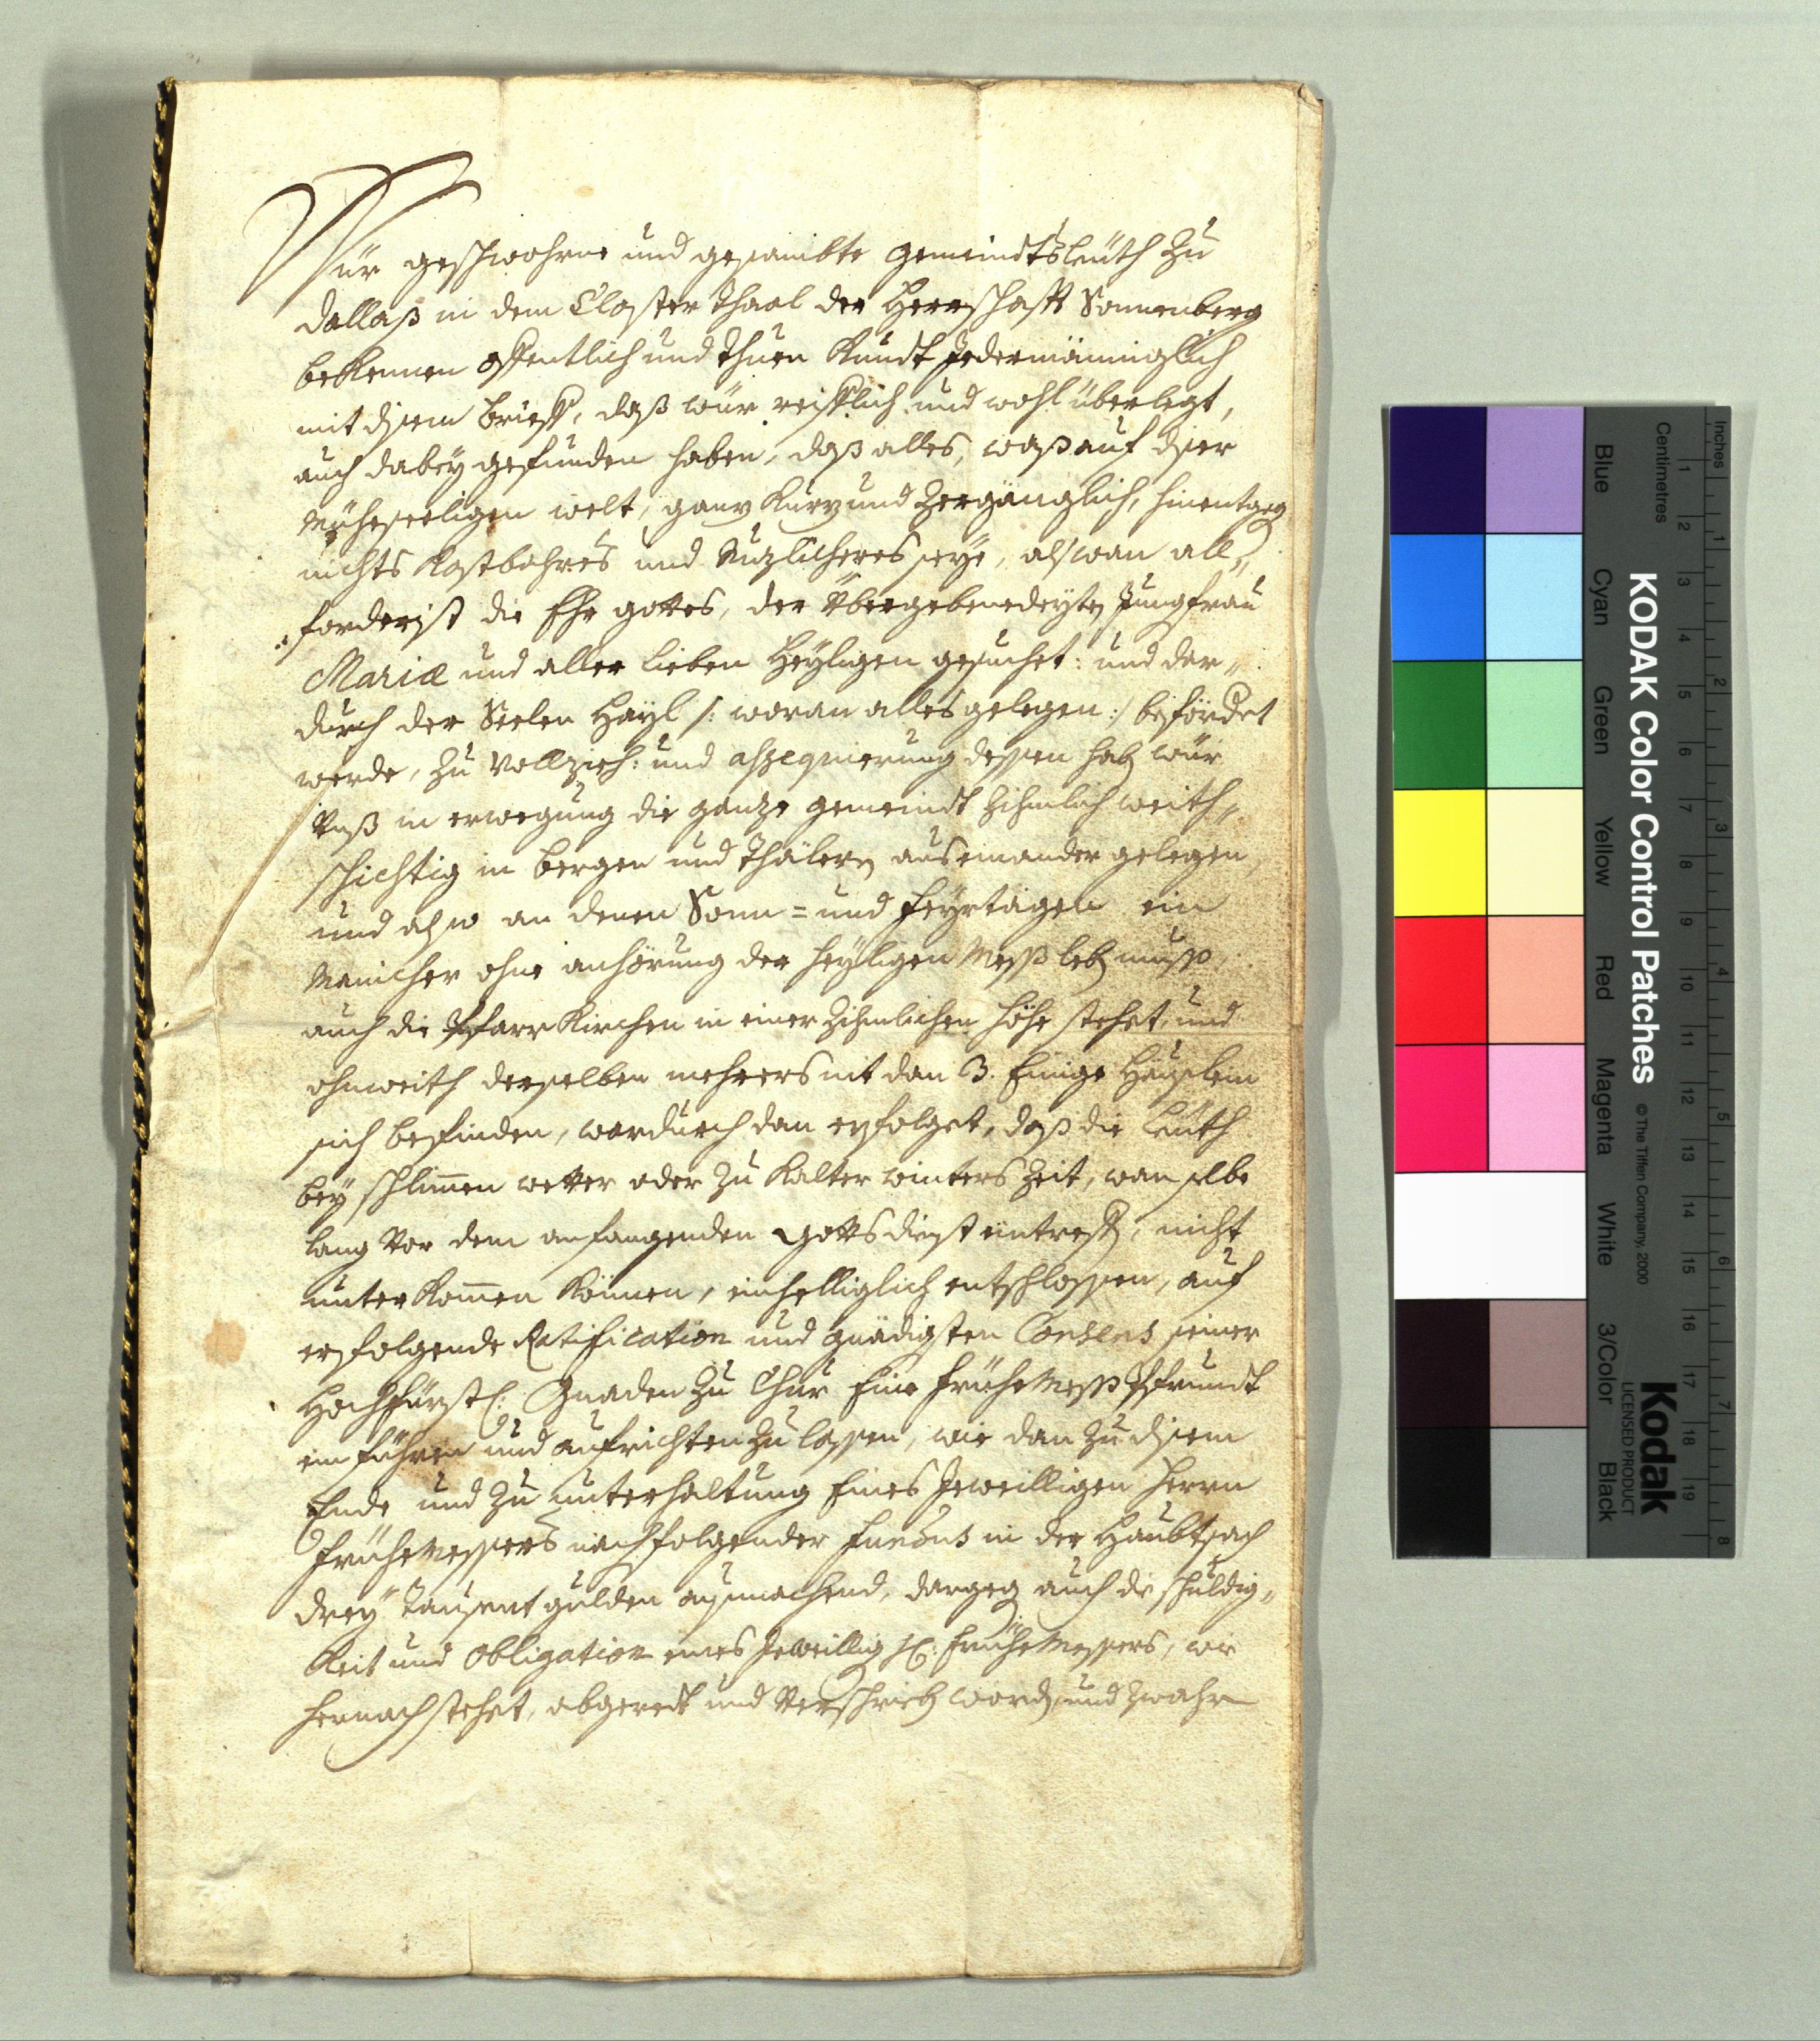 Wür geschwohrne und gesambte Gemeindtsleüth Zu
Dallaß in dem Closter Thaal der Herrschafft Sonnenberg
bekennen offentlich und Thuen Kundt Jedermänniglich
mit disem brieff, daß wür reifflich und wohl überlegt,
auch dabey gefunden haben, daß alles, waß auf diser
Müheseeligen welt, ganz Kurz und Zergänglich, hinentgeg
nichts Kostbahres und Nuzlicheres seye, als wan all„
forderist die Ehr gottes, der Übergebenedeyten Jungfrau
Mariæ und aller lieben Heyligen gesuchet: und dar„
durch der Seelen Hayl /: woran alles gelegen :/ befördret
werde, Zu Vollzieh: und assequierung dessen hab wür
Unß in erwegung die ganze gemeindt Zihmlich weith„
schichtig in bergen und Thälern auseinander gelegen,
und also an denen Sonn= und feyrtägen ein
Manicher ohne anhörung der heyligen Mess leb muss,
auch die Pfarr Kirchen in einer Zihmlichen höhe stehet, und
ohnweith derselben mehrers nit dan 3. Einige Häuslein
sich befinden, wardurch dan erfolget, daß die leuth
bey schlimen wetter oder Zu Kalter winters Zeit, wan selbe
lang vor dem anfangenden Gottsdienst eintreff, nicht
unter Komen Können, einhelliglich entschlossen, auf
erfolgende Ratification und gnädigsten Consens seiner
Hochfürstl: Gnaden Zu Chur Eine frühe Mess Pfrundt
einführen und aufrichten Zu lassen, wie dan Zu disem
Ende und Zu unterhaltung Eines Jeweilligen Herrn
frühe Messers nachfolgender Fundus in der Haubtsach
drey Tausent gulden ausmachend, dargeg auch die schuldig„
Keit und Obligation eines Jeweillig H: frühe Messers, wie
hernach stehet, abgeredt und Verschrieb word, und zwahr
Inches
Centimetres
1 2 3 4 5 6 7 8
1 2 3 4 5 6 7 8 9 10 11 12 13 14 15 16 17 18 19
KODAK Color Control Patches
© The Tiffen Company, 2000
Kodak
LICENSED PRODUCT
Blue
Cyan
Green
Yellow
Red
Magenta
White
3/Color
Black